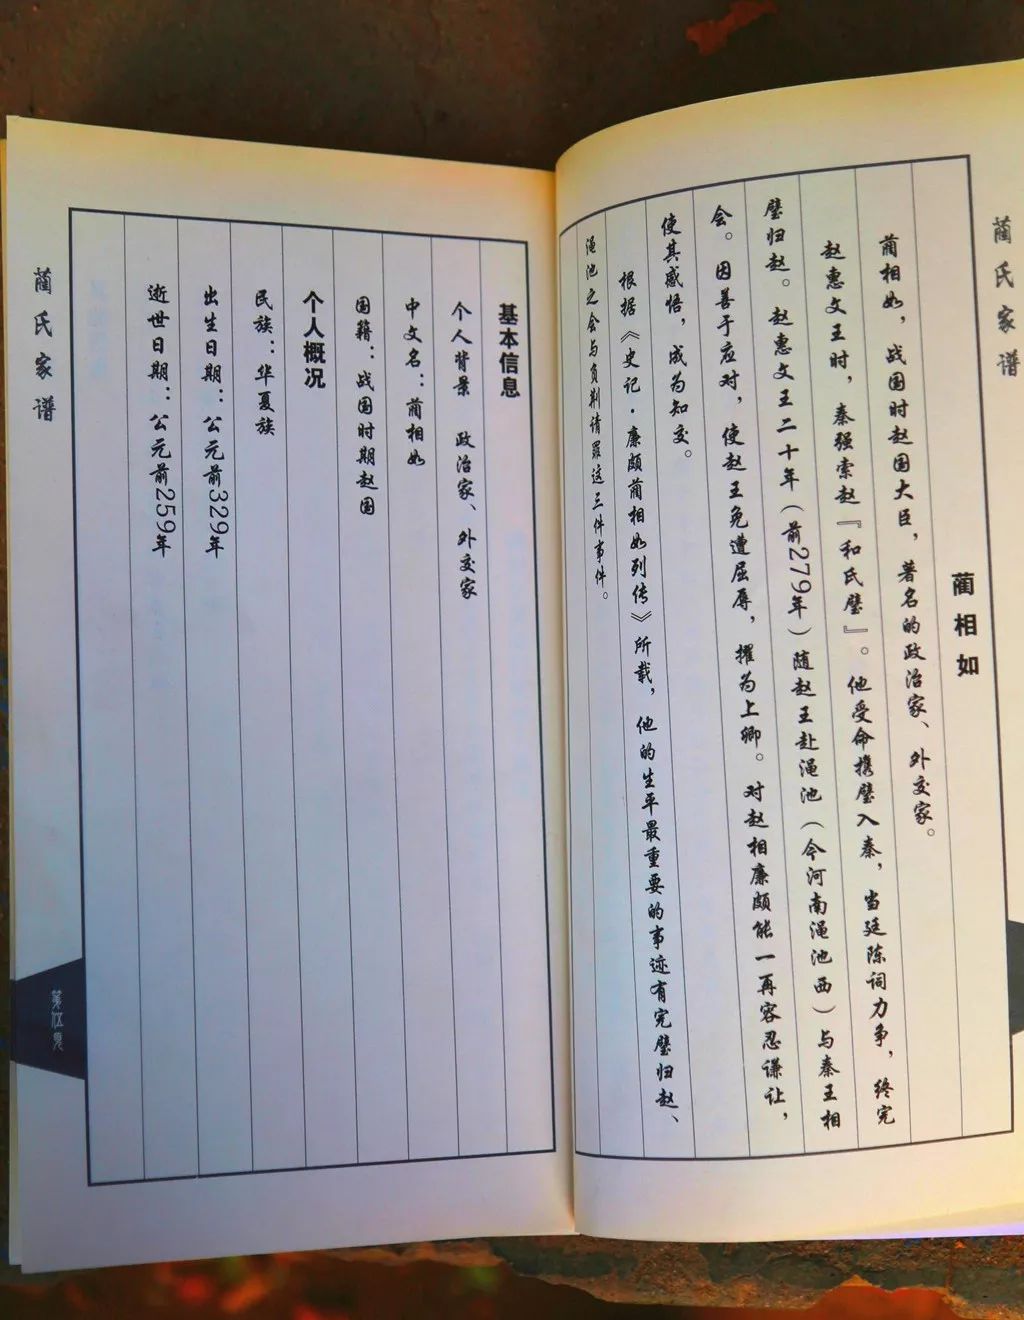 蔺氏家谱
蔺相如
蔺相如，战国时赵国大臣，著名的政治家、外交家。
赵惠文王时，秦强索赵『和氏璧』。他受命携璧入秦，当廷陈词力争，终完
璧归赵。赵惠文王二十年（前279年）随赵王赴渑池（今河南渑池西）与秦王相
会。因善于应对，使赵王免遭屈辱，擢为上卿。对赵相廉颇能一再容忍谦让，
使其感悟，成为知交。
根据《史记·廉颇蔺相如列传》所载，他的生平最重要的事迹有完璧归赵、
渑池之会与负荆请罪这三件事件。
基本信息
个人背景 政治家、外交家
中文名：蔺相如
国籍：战国时期赵国
个人概况
民族：华夏族
出生日期：公元前329年
逝世日期：公元前259年
蔺氏家谱
第伍页